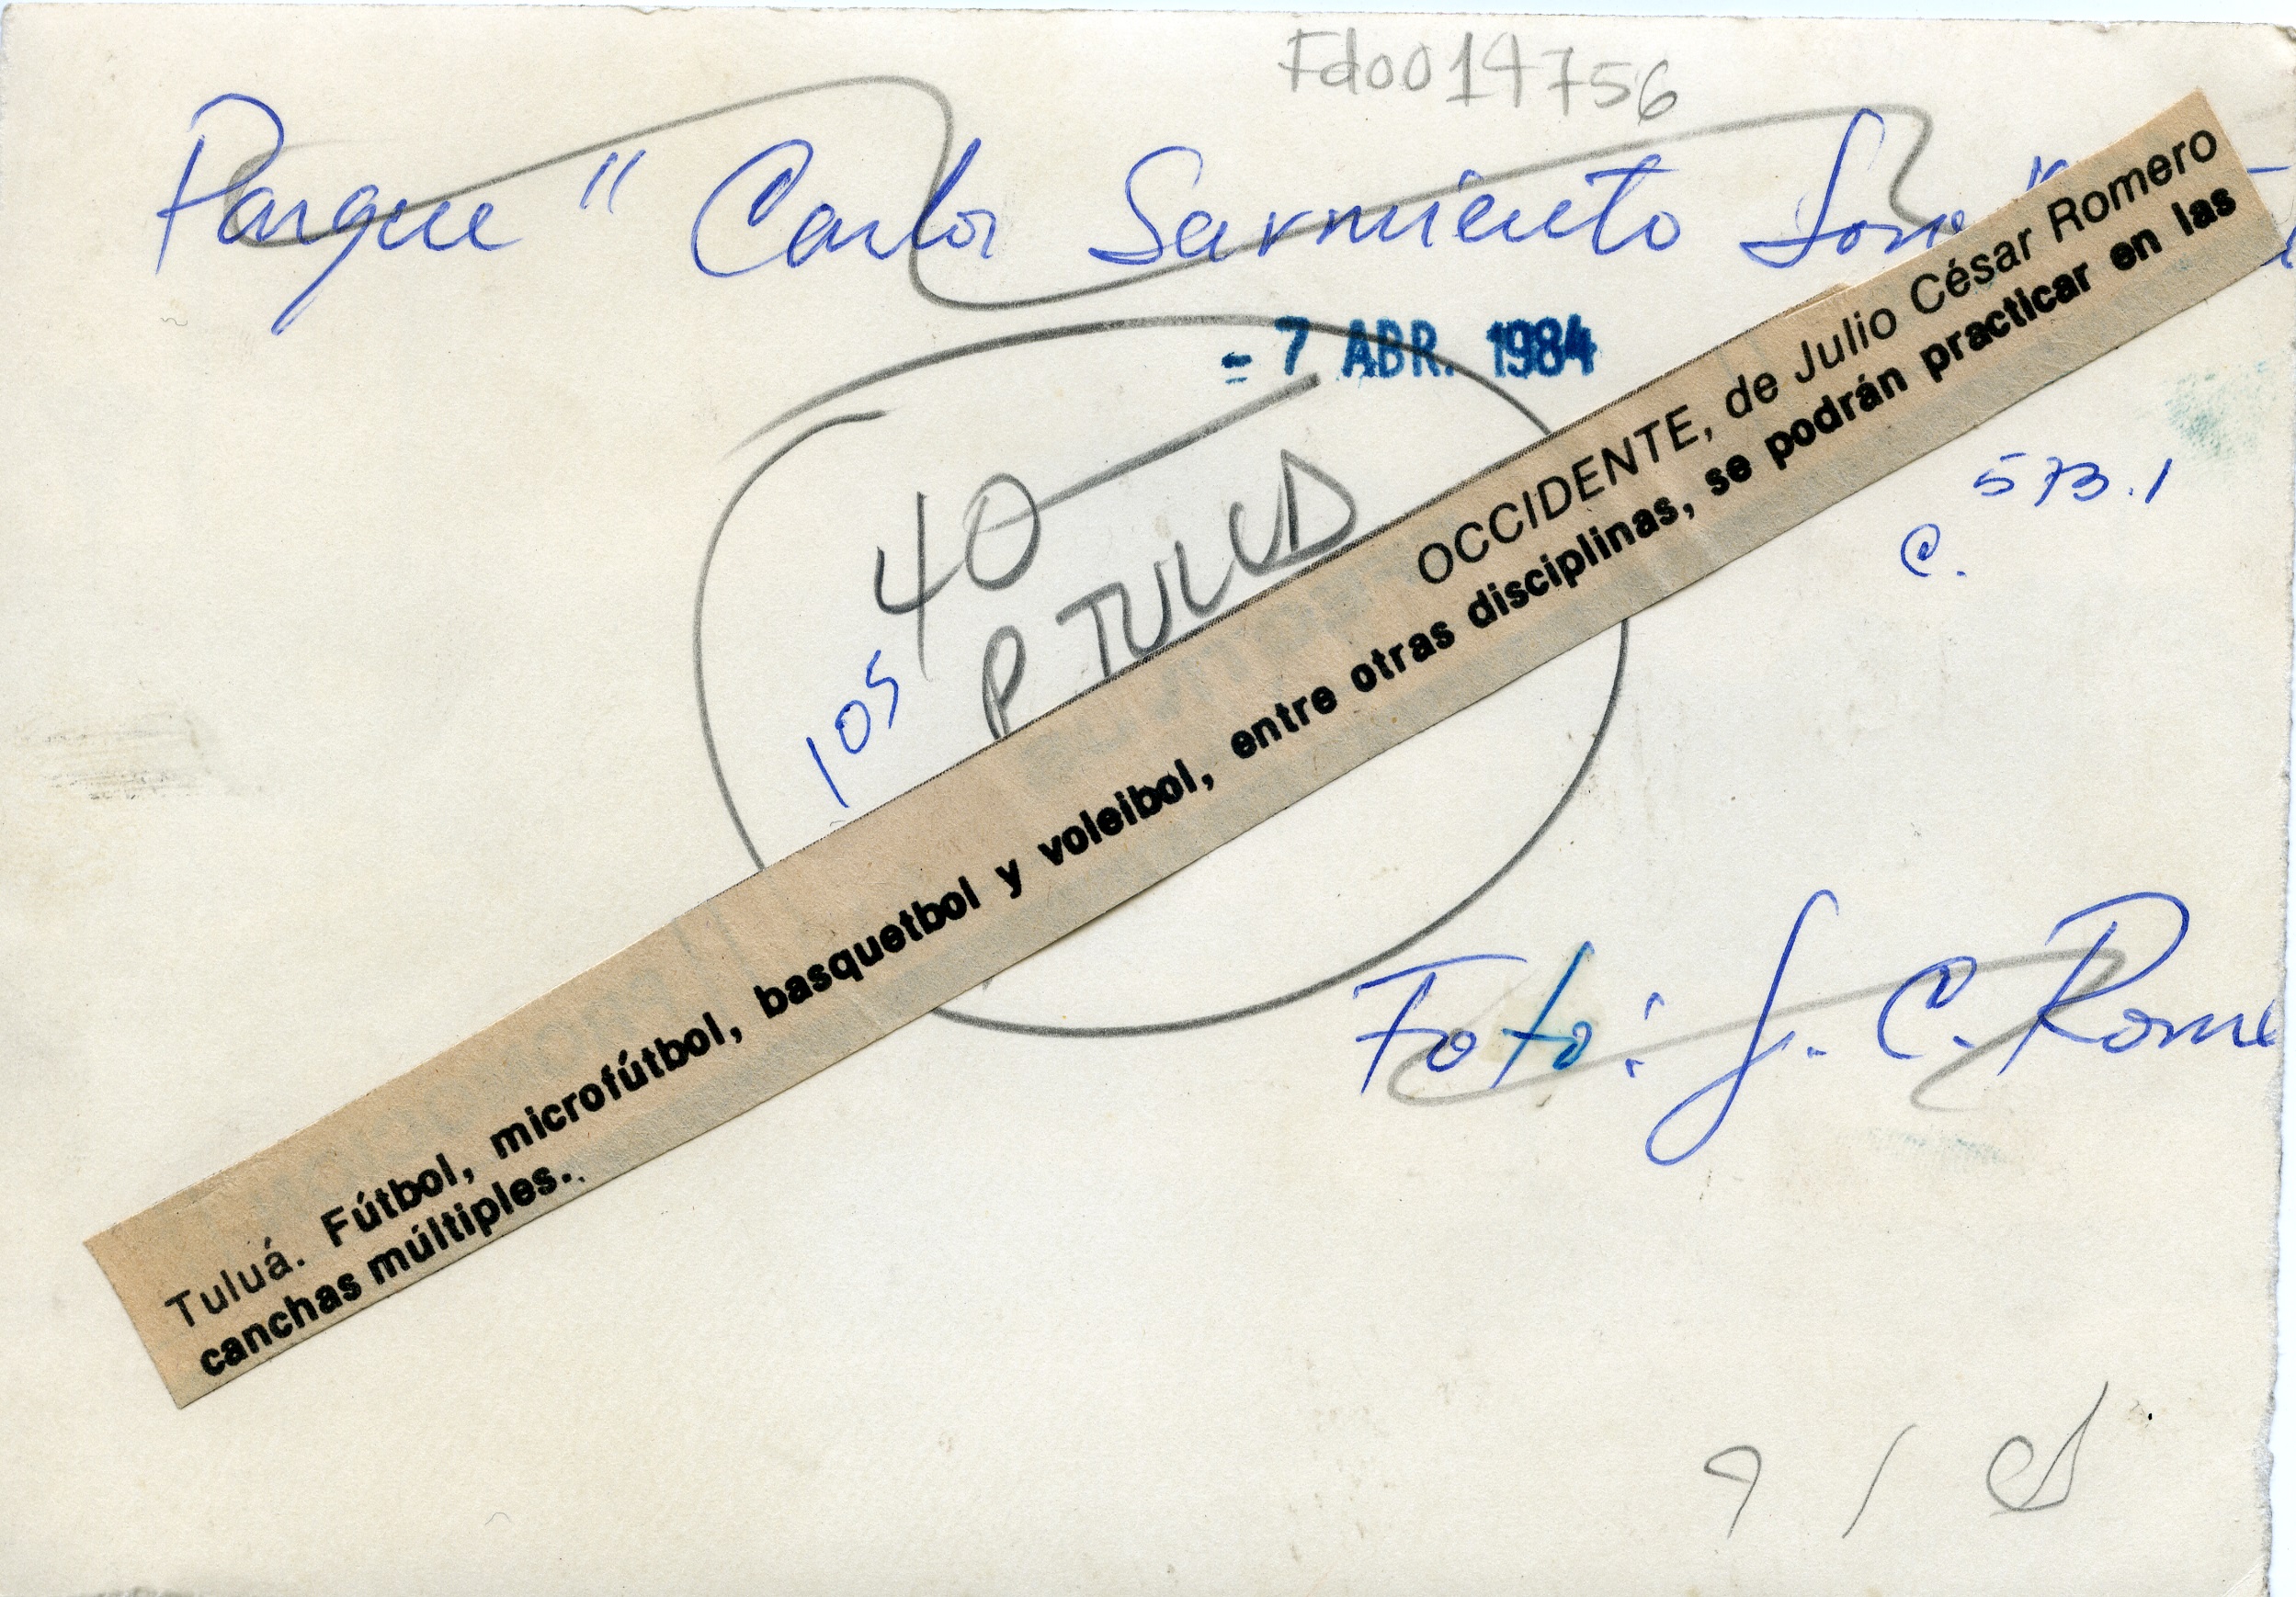 Fdo014756
Parque " Carlos Sarmiento
- 7 ABR. 1984
40
P TULUA
105
573.1
C.
OCCIDENTE, de Julio César Romero
Tuluá. Fútbol, microfútbol, basquetbol y voleibol, entre otras disciplinas, se podrán practicar en las
canchas múltiples.
Foto: J. C. Rome